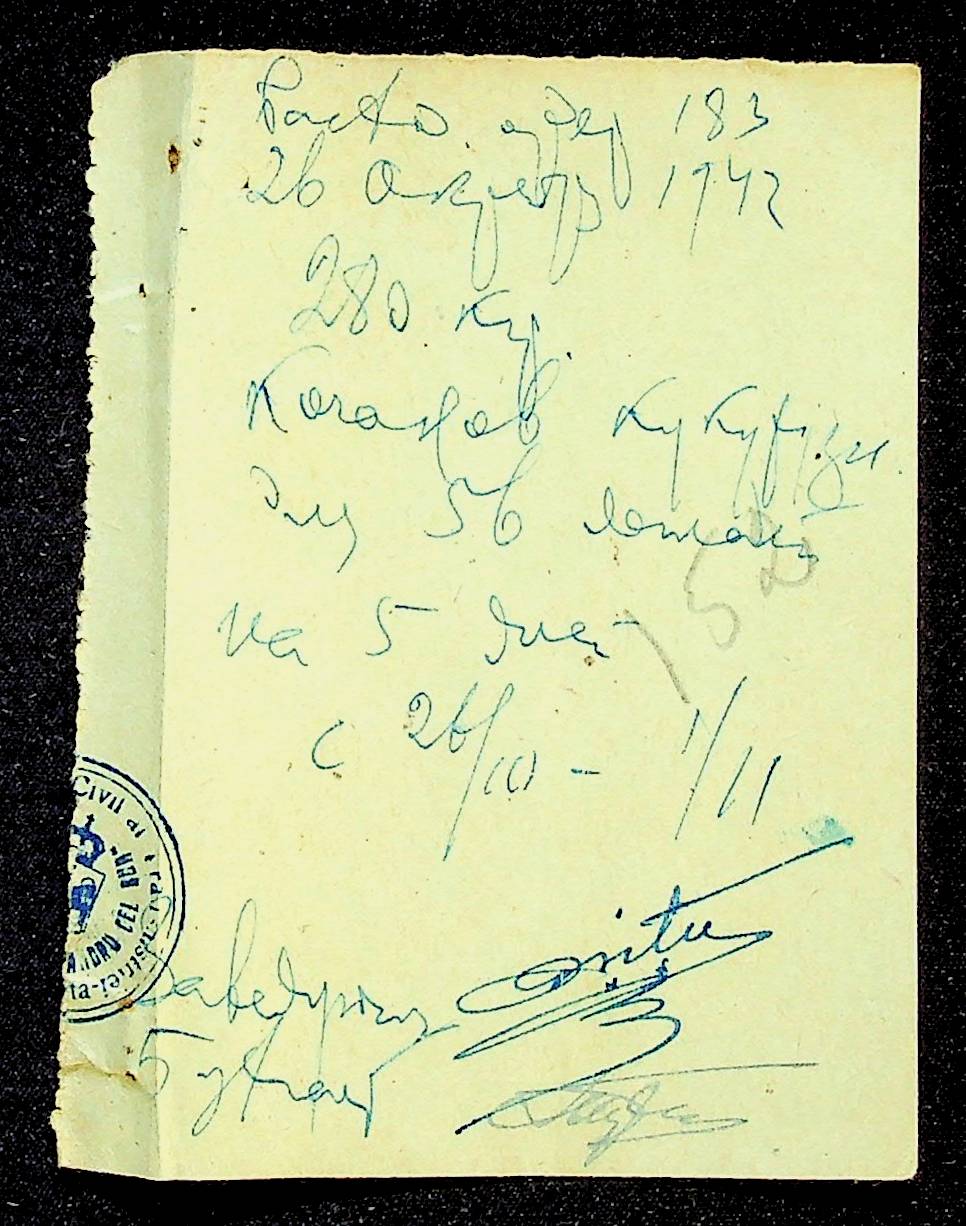 Расход ордер 183
26 Октября 1942
280 кг.
Кочанов Кукурузы
Для 56 лошадей
152
На 5 дней
с 26/10 - 1/11
Civil al
ANDRU CEL BUN"
Заведующий